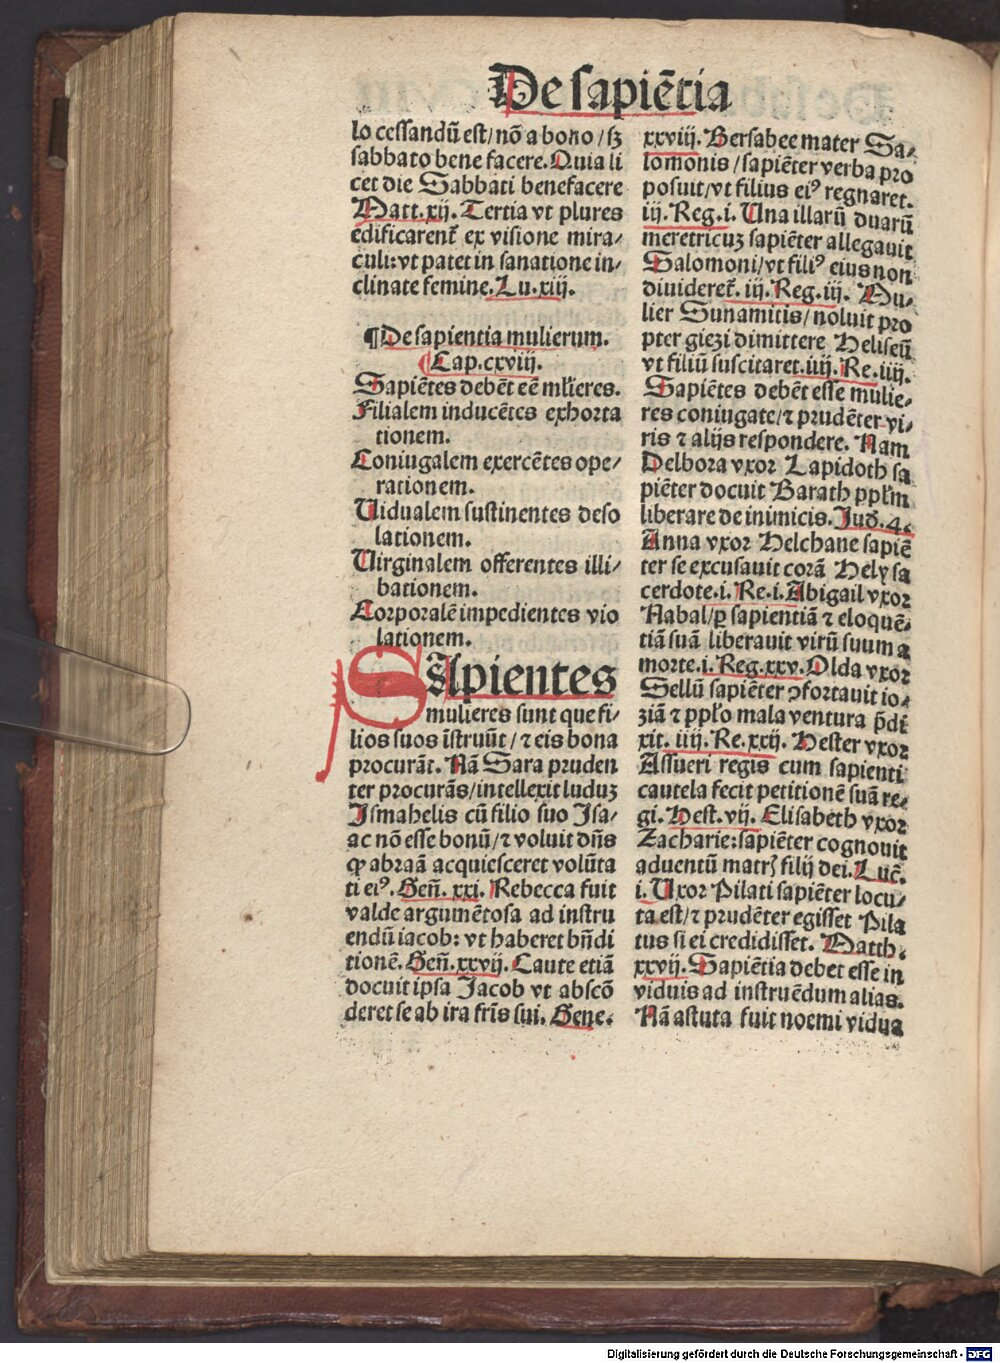 De sapiētia
lo cessandū est/ nō a bono/ sꝫ
sabbato bene facere. Quia li
cet die Sabbati benefacere
Matt. xij. Tertia vt plures
edificarent᷑ ex visione mira/
culi: vt patet in sanatione in/
clinate femine. Lu. xiij.
¶ De sapientia mulierum.
¶ Cap. cxviij.
Sapiētes debēt eē ml̄ieres.
Filialem inducētes exhorta
tionem.
Coniugalem exercētes ope/
rationem.
Uidualem sustinentes deso
lationem.
Uirginalem offerentes illi/
bationem.
Corporalē impedientes vio
lationem.
SApientes
mulieres sunt que fi/
lios suos īstruūt/ ⁊ eis bona
procurāt. Nā Sara pruden
ter procurās/ intellexit luduꝫ
Ismahelis cū filio suo Isa/
ac nō esse bonū/ ⁊ voluit dn̄s
ꝙ abraā acquiesceret volūta
ti eiꝰ. Gen̄. xxi. Rebecca fuit
valde argumētosa ad instru
endū iacob: vt haberet bn̄di
tionē. Gen̄. xxvij. Caute etiā
docuit ipsa Jacob vt abscō
deret se ab ira fr̄is sui. Gene.
xxviij. Bersabee mater Sa/
lomonis/ sapiēter verba pro
posuit/ vt filius eiꝰ regnaret.
iij. Reg. i. Una illarū duarū
meretricuꝫ sapiēter allegauit
Salomoni/ vt filiꝰ eius non
diuideret᷑. iij. Reg. iij. Mu/
lier Sunamitis/ noluit pro
pter giezi dimittere Heliseū
vt filiū suscitaret. iiij. Re. iiij.
Sapiētes debēt esse mulie/
res coniugate/ ⁊ prudēter vi/
ris ⁊ alijs respondere. Nam
Delbora vxor Lapidoth sa
piēter docuit Barath ppl̄m
liberare de inimicis. Jud̄. 4.
Anna vxor Helchane sapiē
ter se excusauit corā Hely sa
cerdote. i. Re. i. Abigail vxor
Nabal/ ꝑ sapientiā ⁊ eloquē/
tiā suā liberauit virū suum a
morte. i. Reg. xxv. Olda vxor
Sellū sapiēter ꝯfortauit io/
ziā ⁊ ppl̄o mala ventura p̄di
xit. iiij. Re. xxij. Hester vxor
Assueri regis cum sapienti
cautela fecit petitionē suā re/
gi. Hest. vij. Elisabeth vxor
Zacharie: sapiēter cognouit
aduentū matrꝭ filij dei. Luc̄.
i. Uxor Pilati sapiēter locu/
ta est/ ⁊ prudēter egisset Pila
tus si ei credidisset. Matth.
xxvij. Sapiētia debet esse in
viduis ad instruēdum alias.
Nā astuta fuit noemi vidua
Digitalisierung gefördert durch die Deutsche Forschungsgemeinschaft - DFG